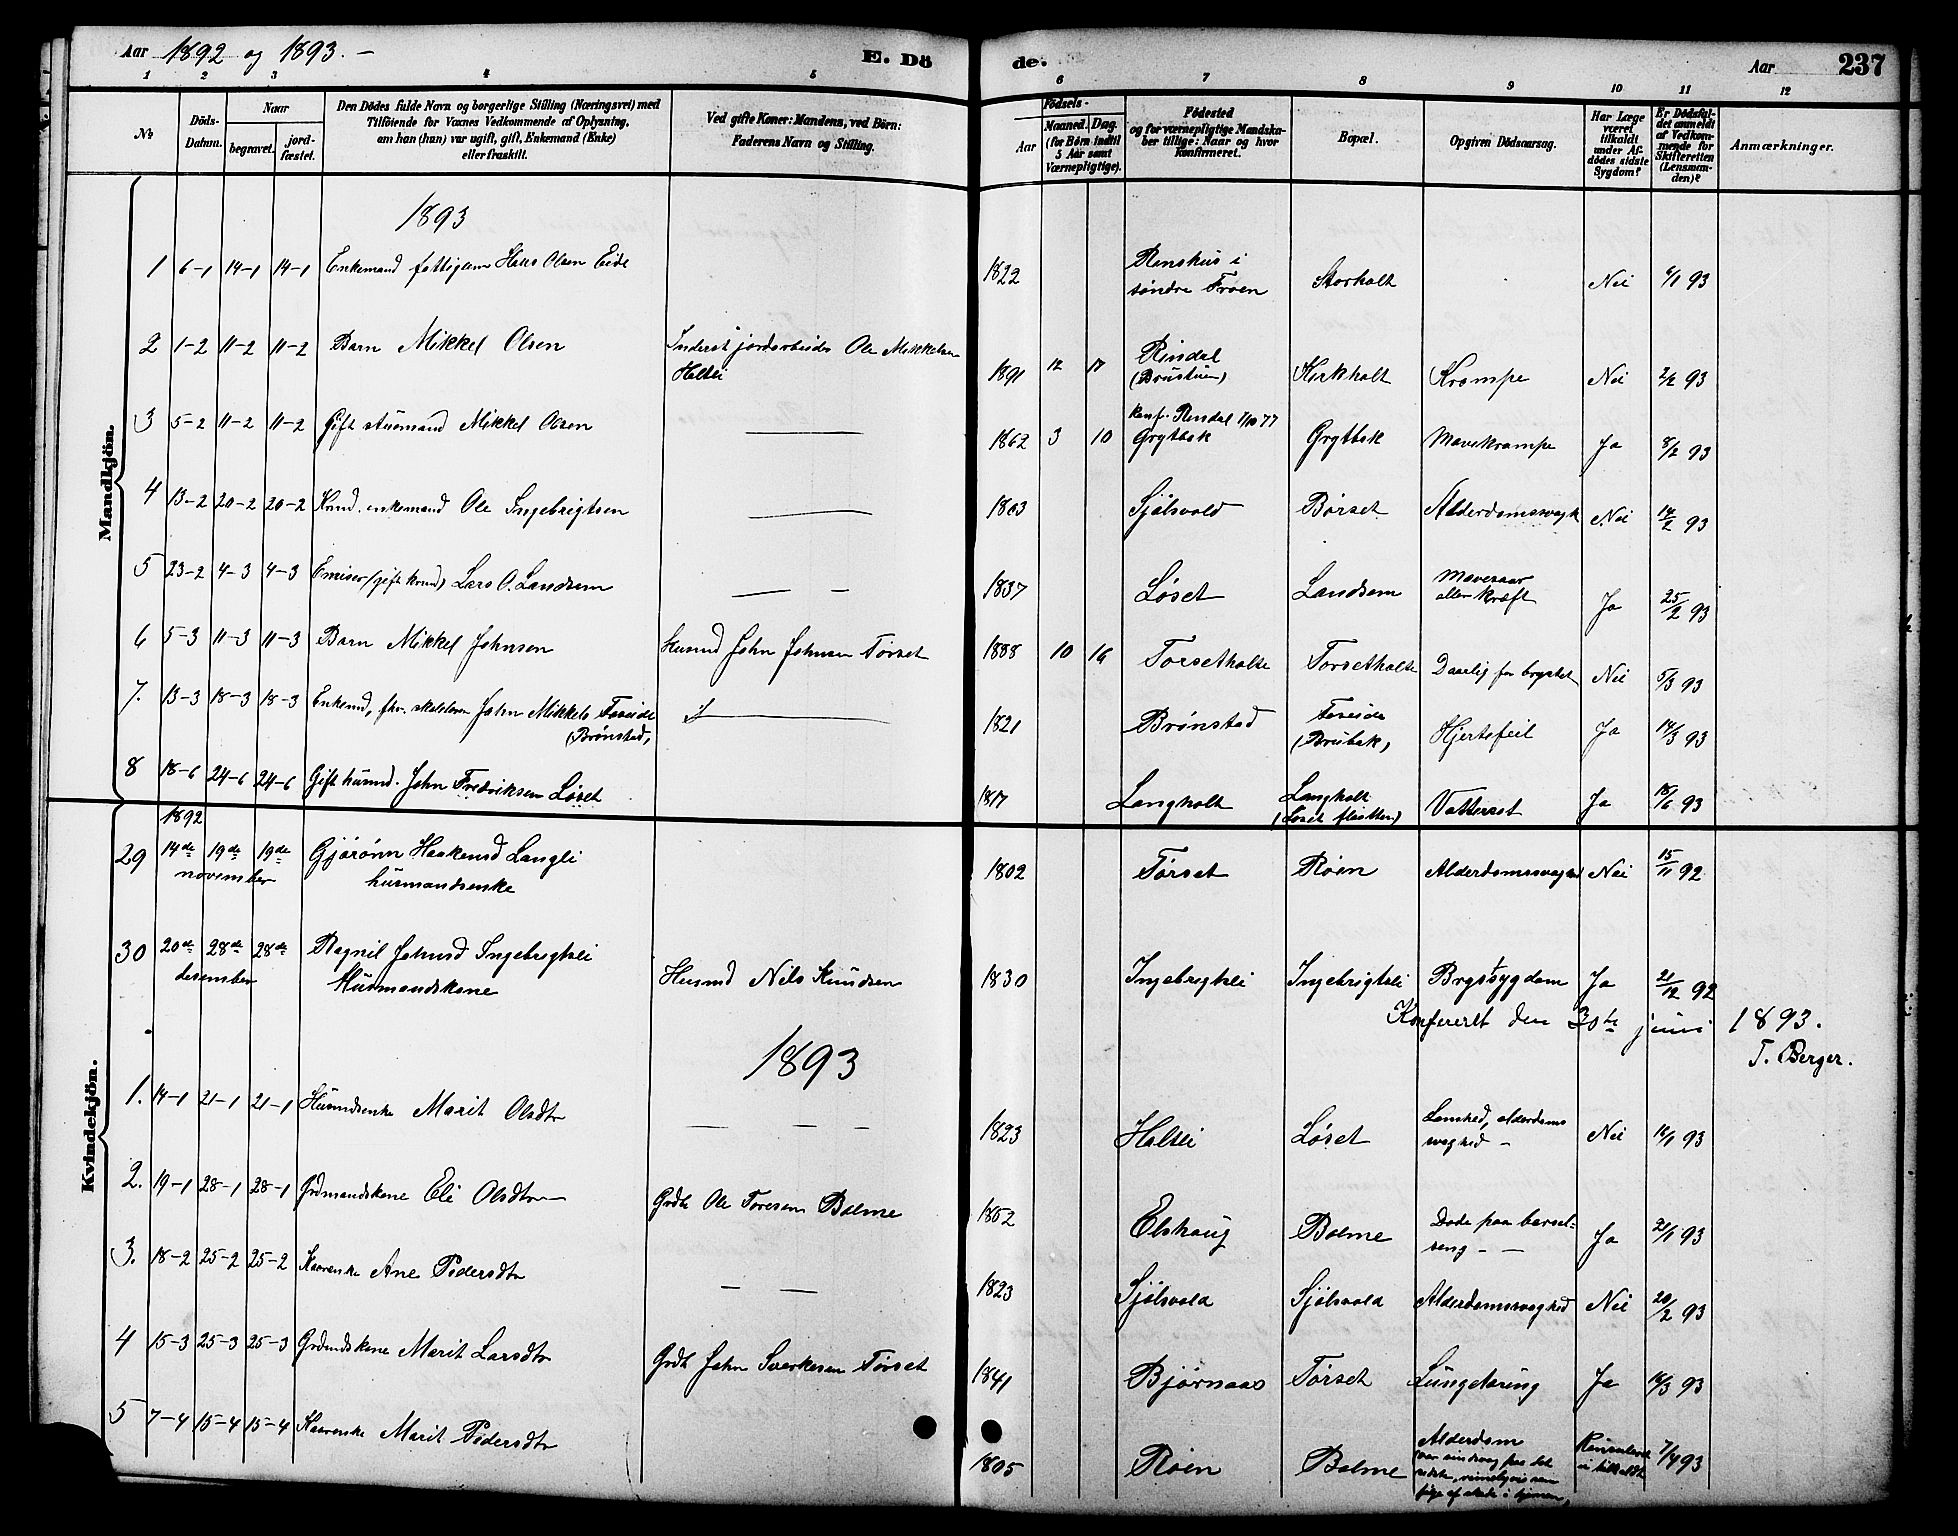 Aar 1892 og 1893. –
E. Dö
de.
Aar 237
1 2 3 4 5 6 7 8 9 10 11 12
No
Döds-
Datum.
Naar
begravet. jord-
fæstet.
Den Dödes fulde Navn og borgerlige Stilling (Næringsvei) med
Tilföiende for Voxnes Vedkommende af Oplysning,
om han (hun) var ugift, gift, Enkemand (Enke)
eller fraskilt.
Ved gifte Koner: Mandens, ved Börn:
Faderens Navn og Stilling.
Födsels-
Aar
Maaned. Dag.
(for Börn indtil
5 Aar samt
Værnepligtige).
Födested
og for værnepligtige Mandska-
ber tillige: Naar og hvor
konfirmeret.
Bopæl.
Opgiven Dödsaarsag.
Har Læge
været
tilkaldt
under Af-
dödes sidste
Sygdom?
Er Dödsfal-
det anmeldt
af Vedkom-
mende for
Skifteretten
(Lensman-
den)?
Anmærkninger.
Mandkjön.
1893
1 6-1 14-1 14-1 Enkemand fattiglem Hans Olsen Eide 1822 Renshus i
søndre Froen Storholt Nei 6/1 93
2 1-2 11-2 11-2 Barn Mikkel Olsen Inderst jordarbeider Ole Mikkelsen
Holtli 1891 12 17 Rindal
(Brustuen) Kirkholt Krampe Nei 2/2 93
3 5-2 11-2 11-2 Gift husmand Mikkel Olsen 1862 3 10 konf. Rindal 7/10 77
Grytbæk Grytbæk Mavekrampe Ja 8/2 93
4 13-2 20-2 20-2 enkemand Ole Ingebrigtsen 1803 Sjølsvold Børset Alderdomssvagh Nei 14/2 93
5 23-2 4-3 4-3 Lars O. Landsem 1837 Løset Landsem Mavesaar
eller kræft Ja 25/2 93
6 5-3 11-3 11-3 Barn Mikkel Johnsen Husmd John Johnsen Tørset 1888 10 16 Torsetholte Torsetholte Daarlig for brystet Nei 5/3 93
7. 13-3 18-3 18-3 Enkemd, fhv. skolelærer John Mikkels Foseide
(Brønstad) 1821 Brønstad Foseide
(Brubæk) Hjertefeil Ja 14/3 93
8 18-6 24-6 24-6 Gift husmd. John Fredriksen Løset 1817 Langholt Langholt
(Løset) Vattersot Ja 18/6 93
Kvindekjön.
1892
29 14de 19de 19de
november Gjørønn Haakensd Langli
husmandsenke 1802 Tørset Røen Alderdomssvaghed Nei 15/11 92
30 20de 28de 28de
desember Ragnil Johnsd Ingebrigtsli
Husmandskone Husmd Nils Knudsen 1830 Ingebrigtsli Ingebrigtsli Brystsygdom Ja 21/12 92
Konfereret den 30te juni 1893.
T. Berger.
1893
1. 14-1 21-1 21-1 Husmdsenke Marit Olsdtr 1823 Holtli Løset Lamhed, alderdoms
svaghed – Nei 14/1 93
2. 19-1 28-1 28-1 Grdmandskone Eli Olsdtr Grdbr Ole Toresen Bolme 1852 Elshaug Bolme Døde paa barsel-
seng – – Ja 21/1 93
3. 18-2 25-2 25-2 Kaarenke Ane Pedersdtr 1823 Sjølsvold Sjølsvold Alderdomssvaghed Nei 20/2 93
4 15-3 25-3 25-3 Grdmdskone Marit Larsdtr Grdb John Sverkesen Tørset 1841 Bjørnaas Tørset Lungetæring Ja 16/3 93
5 7-4 15-4 15-4 Kaarenke Marit Pedersdtr 1805 Røen Bolme Alderdom
(var paa det
sidste, 
følge af slag i hjernen) Konsulteret
ei tilkaldt 7/4 93